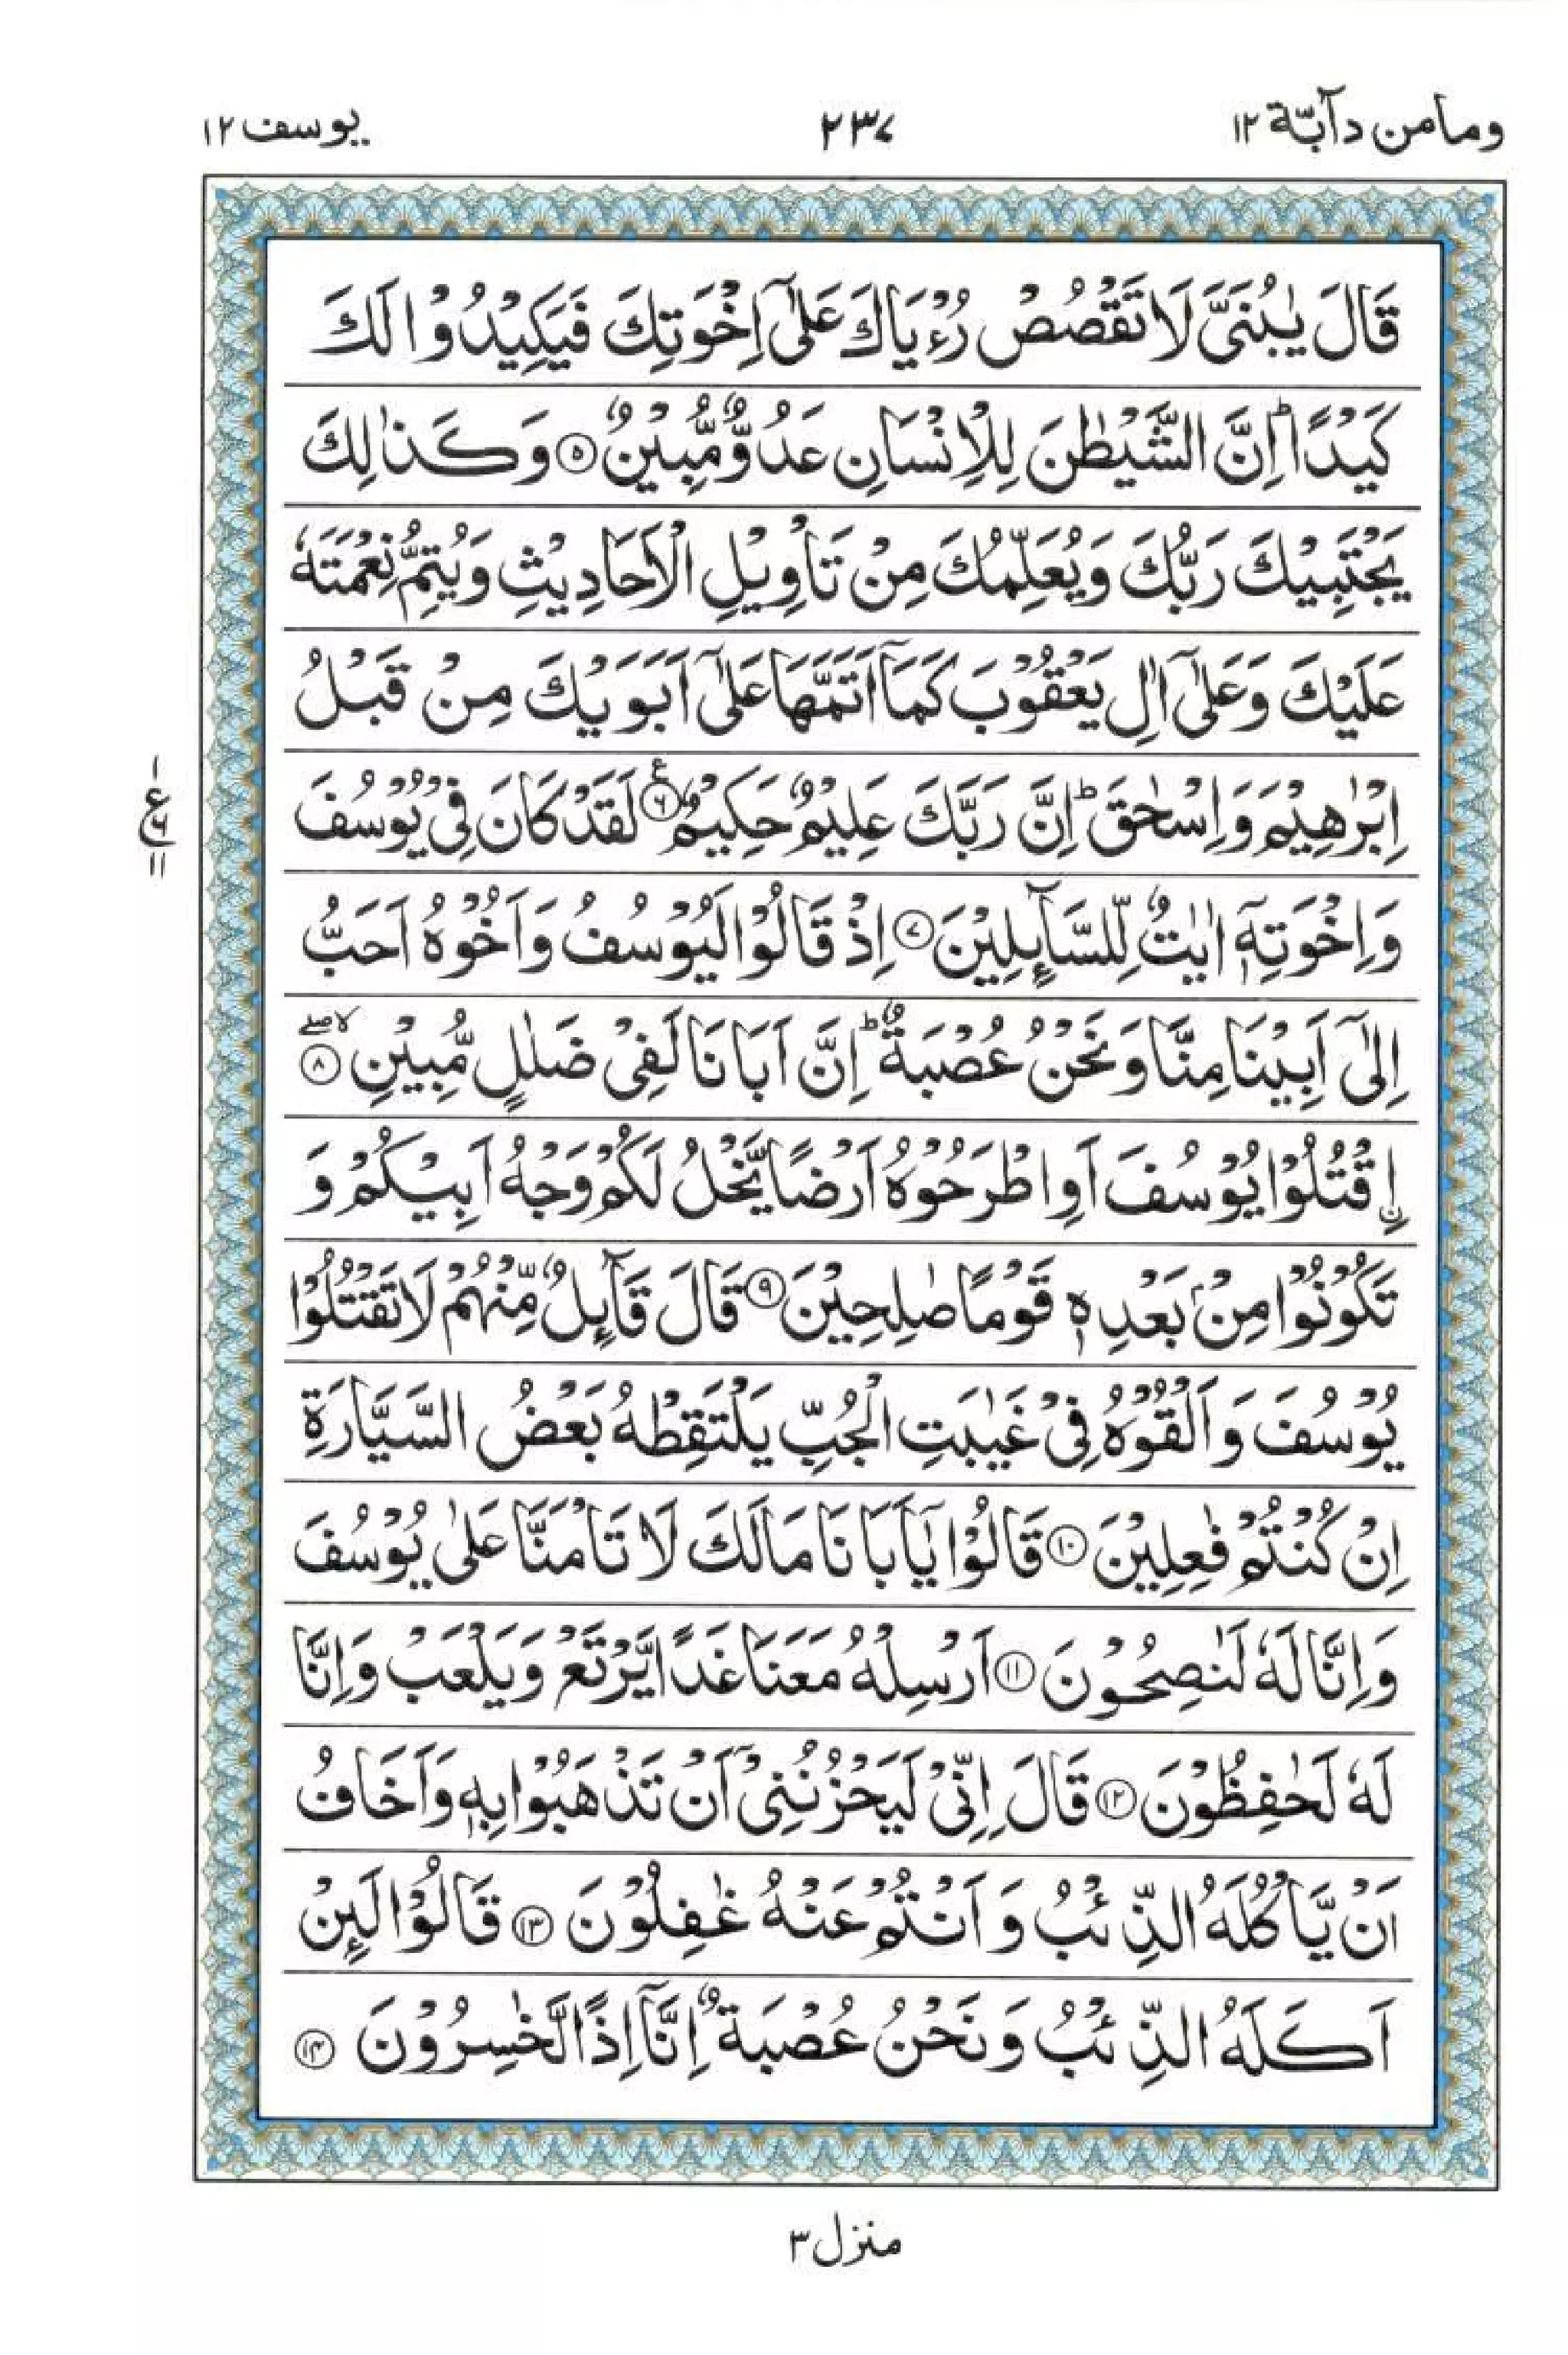 ومامن دآبّة ۱۲
۲۳۷
يوسف ۱۲
قَالَ يٰبُنَيَّ لَا تَقْصُصْ رُءْيَاكَ عَلٰٓى اِخْوَتِكَ فَيَكِيْدُوْا لَكَ
كَيْدًا ؕ اِنَّ الشَّيْطٰنَ لِلْاِنْسَانِ عَدُوٌّ مُّبِيْنٌ ۵ وَكَذٰلِكَ
يَجْتَبِيْكَ رَبُّكَ وَيُعَلِّمُكَ مِنْ تَاْوِيْلِ الْاَحَادِيْثِ وَيُتِمُّ نِعْمَتَهٗ
عَلَيْكَ وَعَلٰٓى اٰلِ يَعْقُوْبَ كَمَآ اَتَمَّهَا عَلٰٓى اَبَوَيْكَ مِنْ قَبْلُ
اِبْرٰهِيْمَ وَاِسْحٰقَ ؕ اِنَّ رَبَّكَ عَلِيْمٌ حَكِيْمٌ ۶ ع لَقَدْ كَانَ فِيْ يُوْسُفَ
۱
ع
۶
۱۱
وَاِخْوَتِهٖٓ اٰيٰتٌ لِّلسَّآىِٕلِيْنَ ۷ اِذْ قَالُوْا لَيُوْسُفُ وَاَخُوْهُ اَحَبُّ
اِلٰٓى اَبِيْنَا مِنَّا وَنَحْنُ عُصْبَةٌ ؕ اِنَّ اَبَانَا لَفِيْ ضَلٰلٍ مُّبِيْنِ ۸ ۙصلے
اۨقْتُلُوْا يُوْسُفَ اَوِاطْرَحُوْهُ اَرْضًا يَّخْلُ لَكُمْ وَجْهُ اَبِيْكُمْ وَ
تَكُوْنُوْا مِنْۢ بَعْدِهٖ قَوْمًا صٰلِحِيْنَ ۹ قَالَ قَآىِٕلٌ مِّنْهُمْ لَا تَقْتُلُوْا
يُوْسُفَ وَاَلْقُوْهُ فِيْ غَيٰبَتِ الْجُبِّ يَلْتَقِطْهُ بَعْضُ السَّيَّارَةِ
اِنْ كُنْتُمْ فٰعِلِيْنَ ۱۰ قَالُوْا يٰٓاَبَانَا مَا لَكَ لَا تَاْمَنَّا عَلٰى يُوْسُفَ
وَاِنَّا لَهٗ لَنٰصِحُوْنَ ۱۱ اَرْسِلْهُ مَعَنَا غَدًا يَّرْتَعْ وَيَلْعَبْ وَاِنَّا
لَهٗ لَحٰفِظُوْنَ ۱۲ قَالَ اِنِّيْ لَيَحْزُنُنِيْٓ اَنْ تَذْهَبُوْا بِهٖ وَاَخَافُ
اَنْ يَّاْكُلَهُ الذِّئْبُ وَاَنْتُمْ عَنْهُ غٰفِلُوْنَ ۱۳ قَالُوْا لَىِٕنْ
اَكَلَهُ الذِّئْبُ وَنَحْنُ عُصْبَةٌ اِنَّآ اِذًا لَّخٰسِرُوْنَ ۱۴
منزل ۳